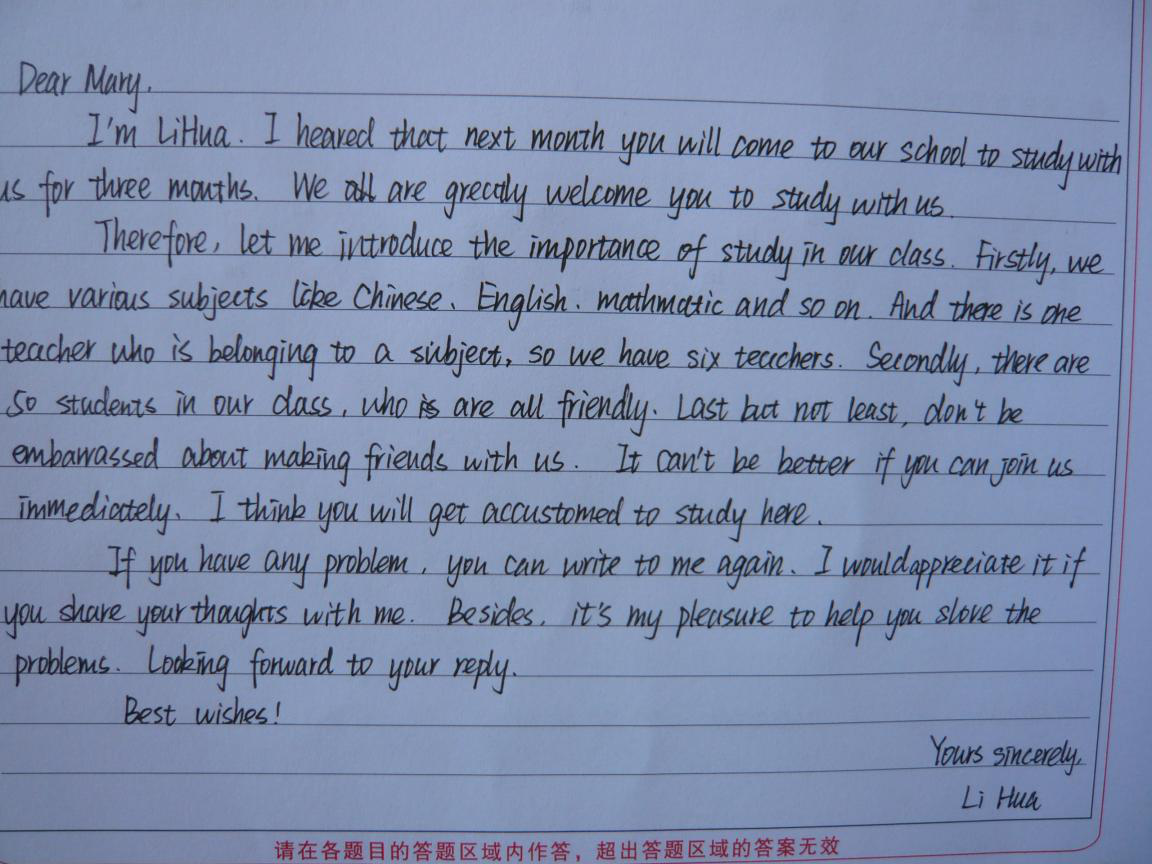 Dear Mary.
I'm LiHua. I heared that next month you will come to our school to study with
us for three months. We all are greatly welcome you to study with us.
Therefore, let me introduce the importance of study in our class. Firstly, we
have various subjects like Chinese、English、mathmatic and so on. And there is one
teacher who is belonging to a subject, so we have six teachers. Secondly, there are
50 students in our class, who are all friendly. Last but not least, don't be
embarrassed about making friends with us. It can't be better if you can join us
immediately. I think you will get accustomed to study here.
If you have any problem, you can write to me again. I would appreciate it if
you share your thoughts with me. Besides, it's my pleasure to help you slove the
problems. Looking forward to your reply.
Best wishes!
Yours sincerely,
Li Hua
请在各题目的答题区域内作答，超出答题区域的答案无效